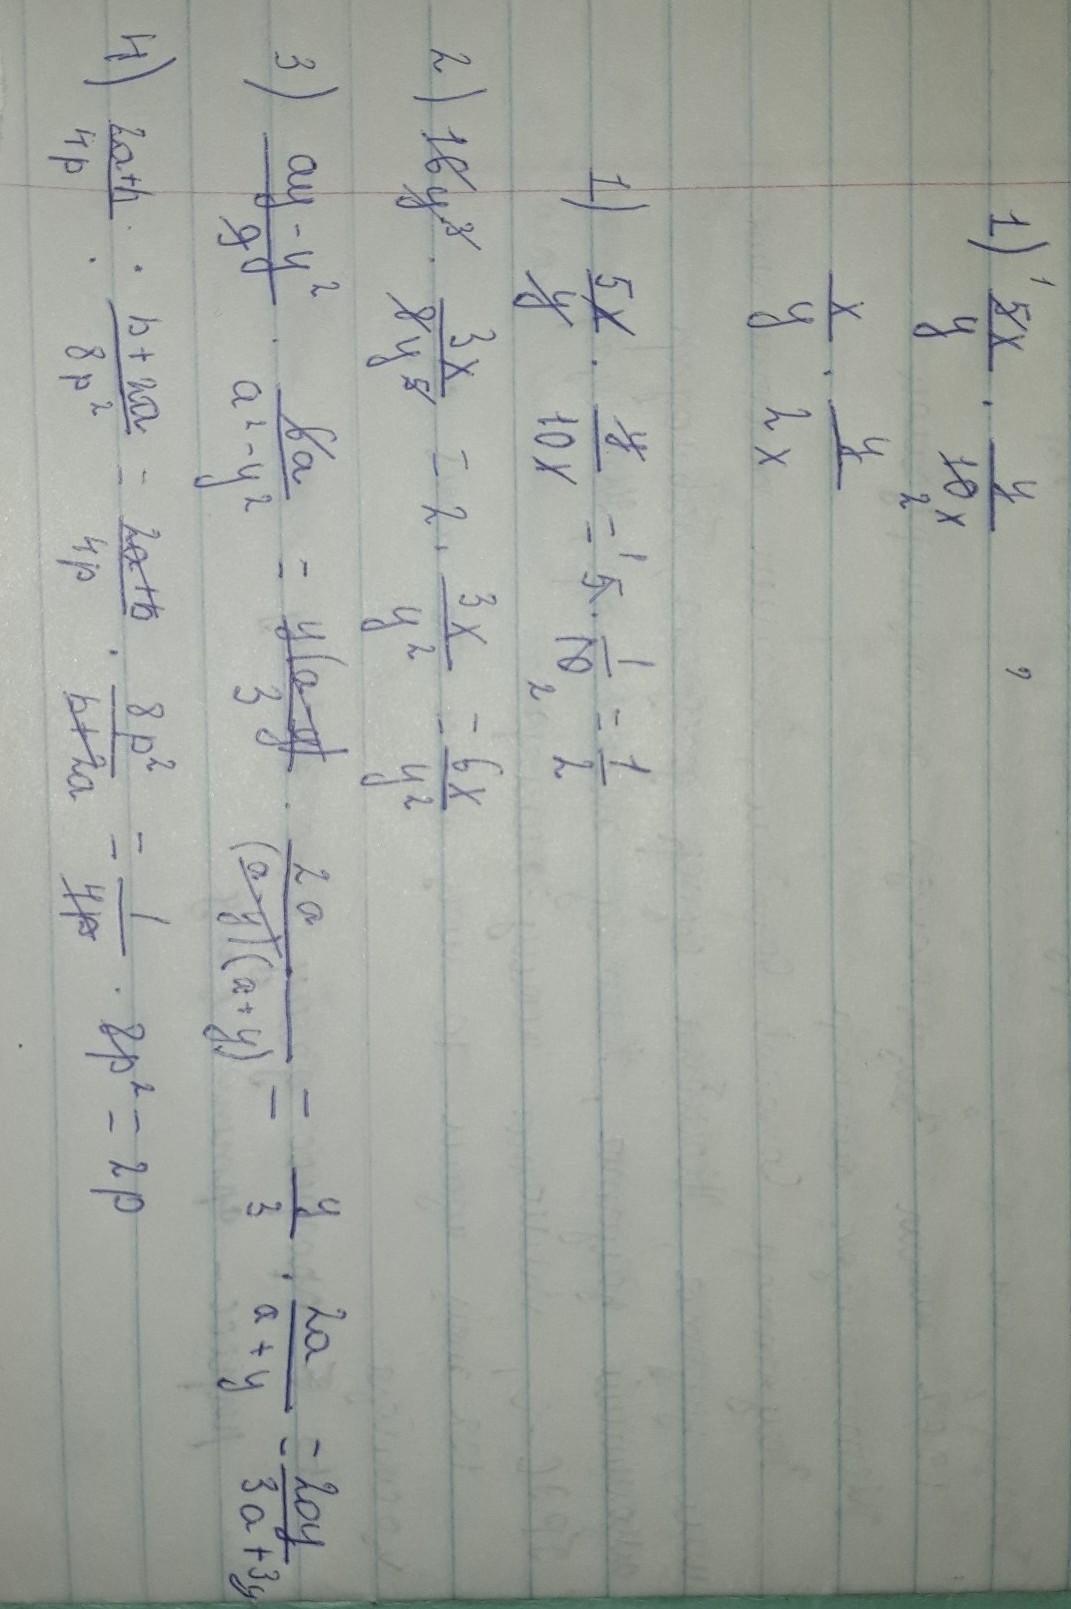 1) ¹ 5x/y · y/10x 2
x/y · y/2x
1) 5x/y · y/10x = ¹5 · 1/10 2 = 1/2
2) 16y³ · 3x/8y⁵ = 2 · 3x/y² = 6x/y²
3) ay-y²/9y · 6a/a²-y² = y(a-y)/3y · 2a/(a-y)(a+y) = y/3 · 2a/a+y = 2ay/3a+3y
4) 2a+b/4p : b+2a/8p² = 2a+b/4p · 8p²/b+2a = 1/4p · 8p² = 2p